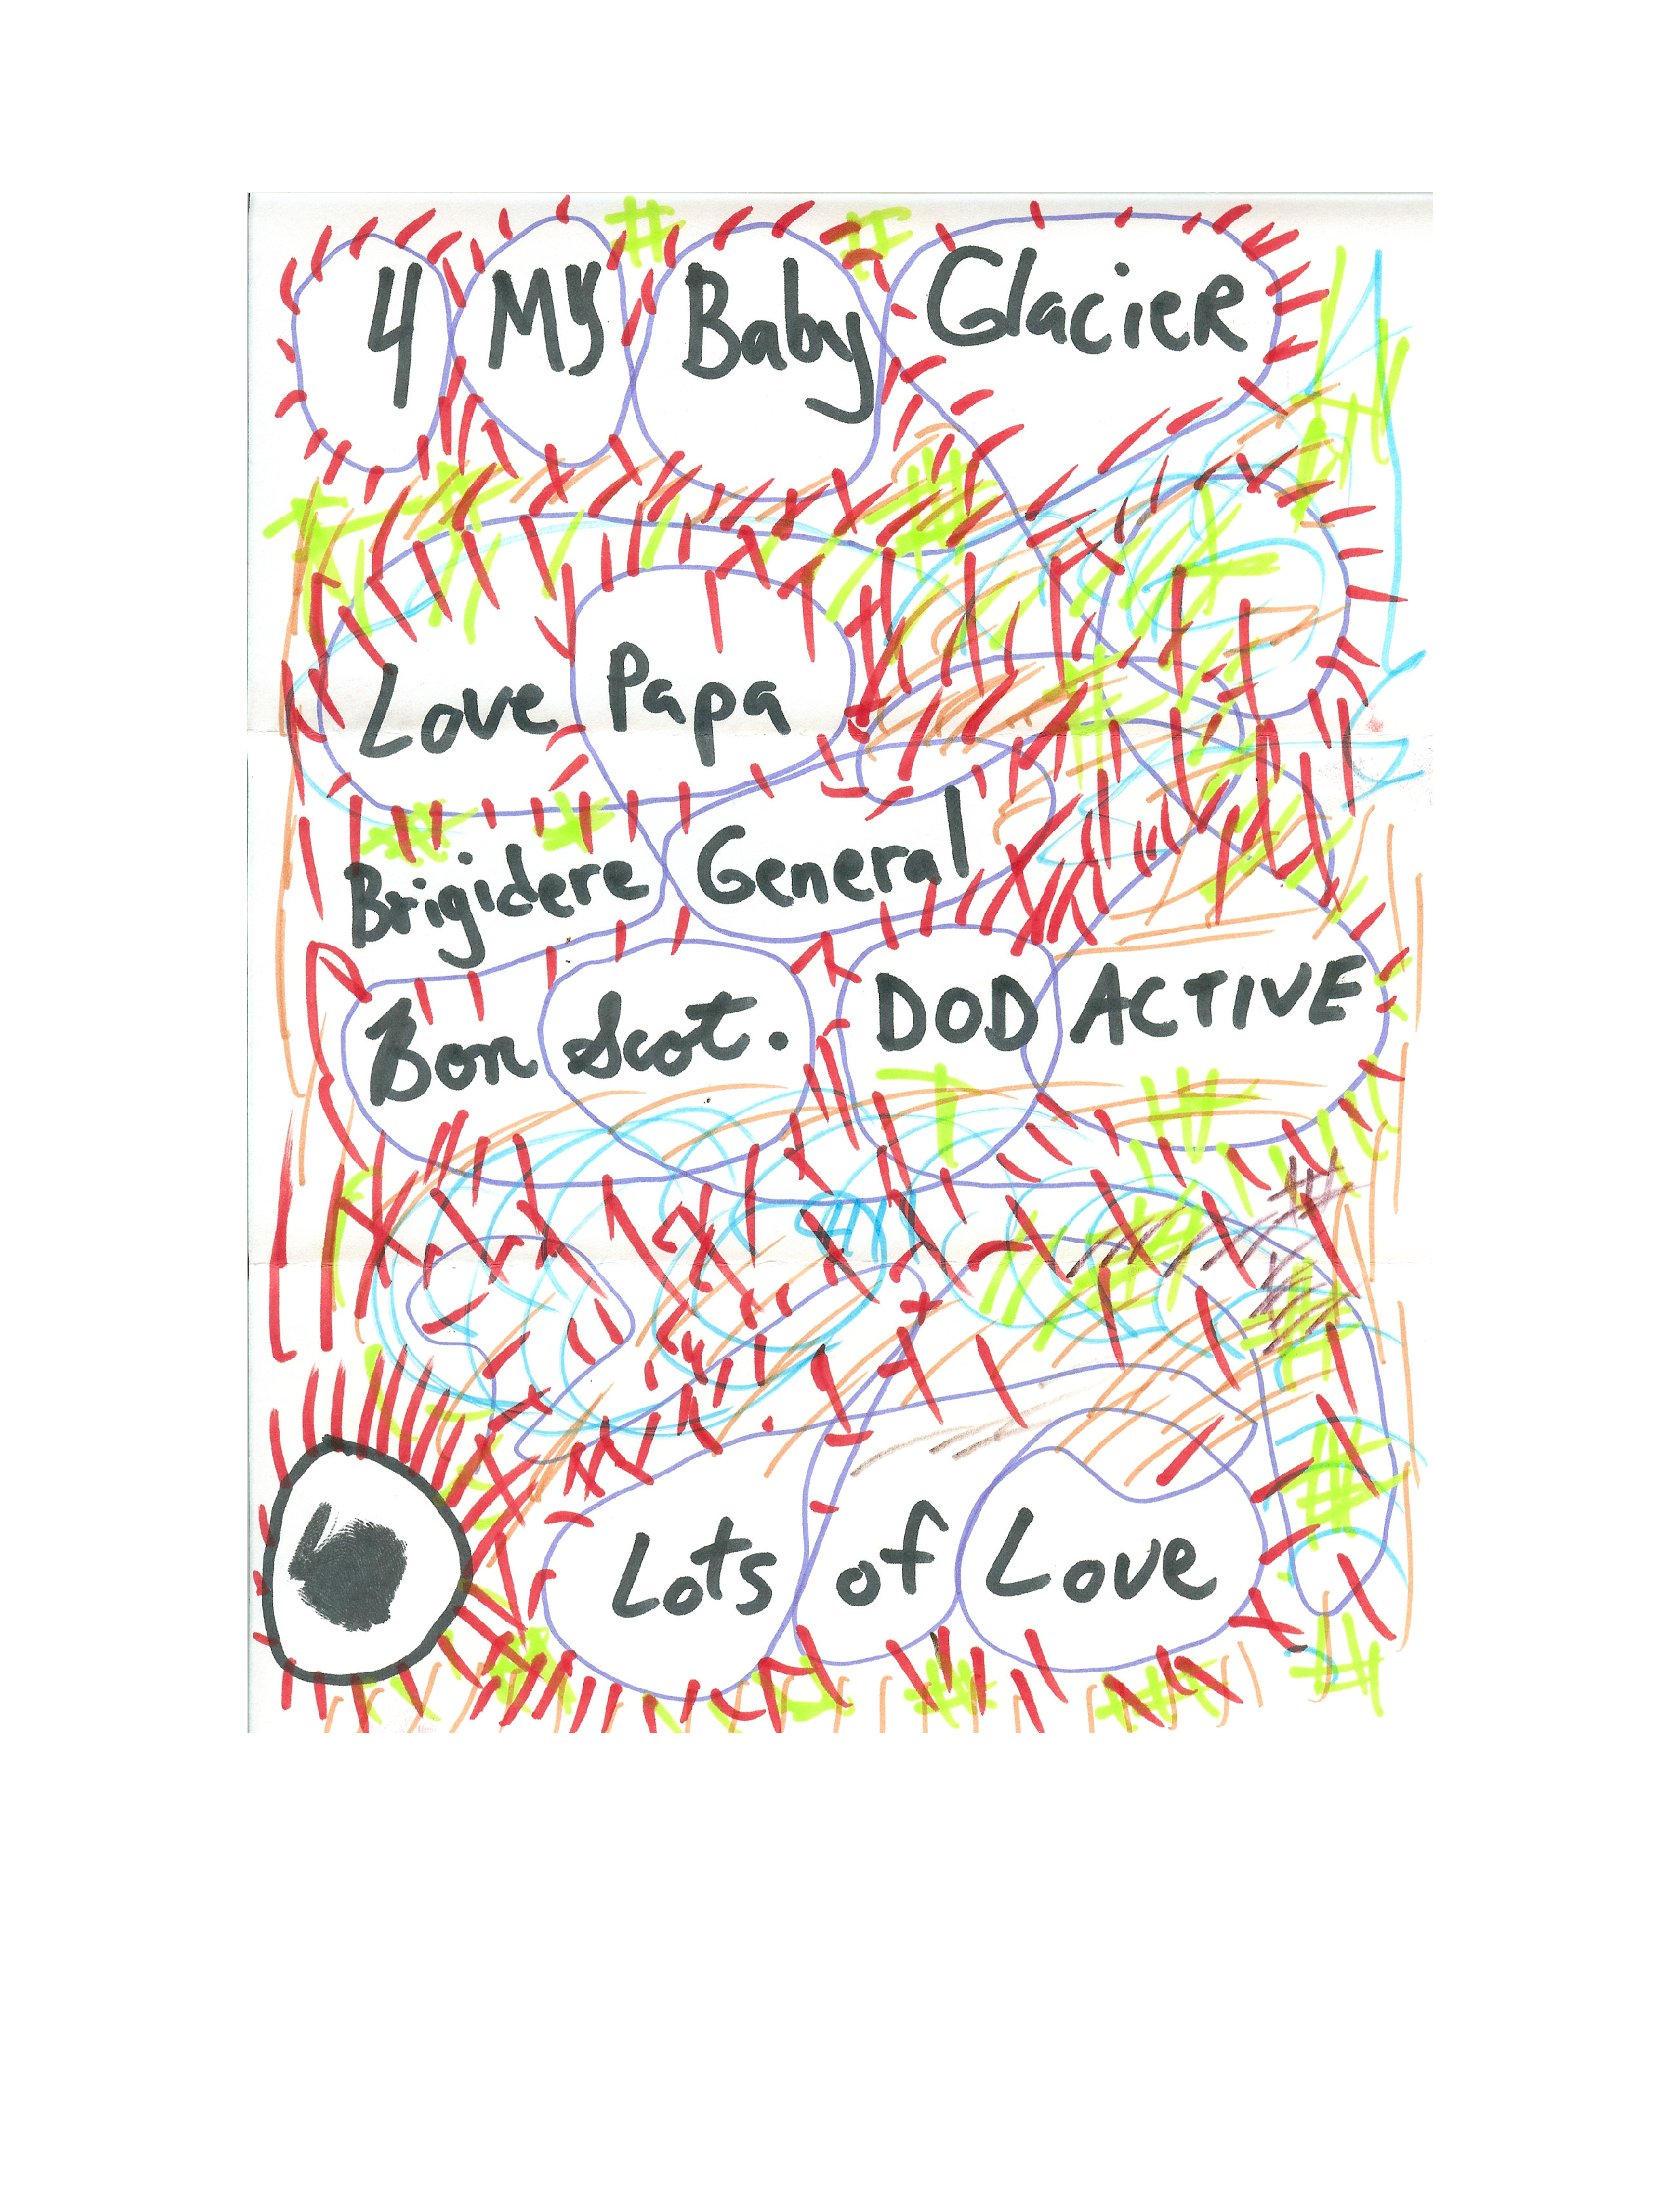 4 My Baby Glacier
Love Papa
Brigidere General
Bon Scot. DOD ACTIVE
Lots of Love